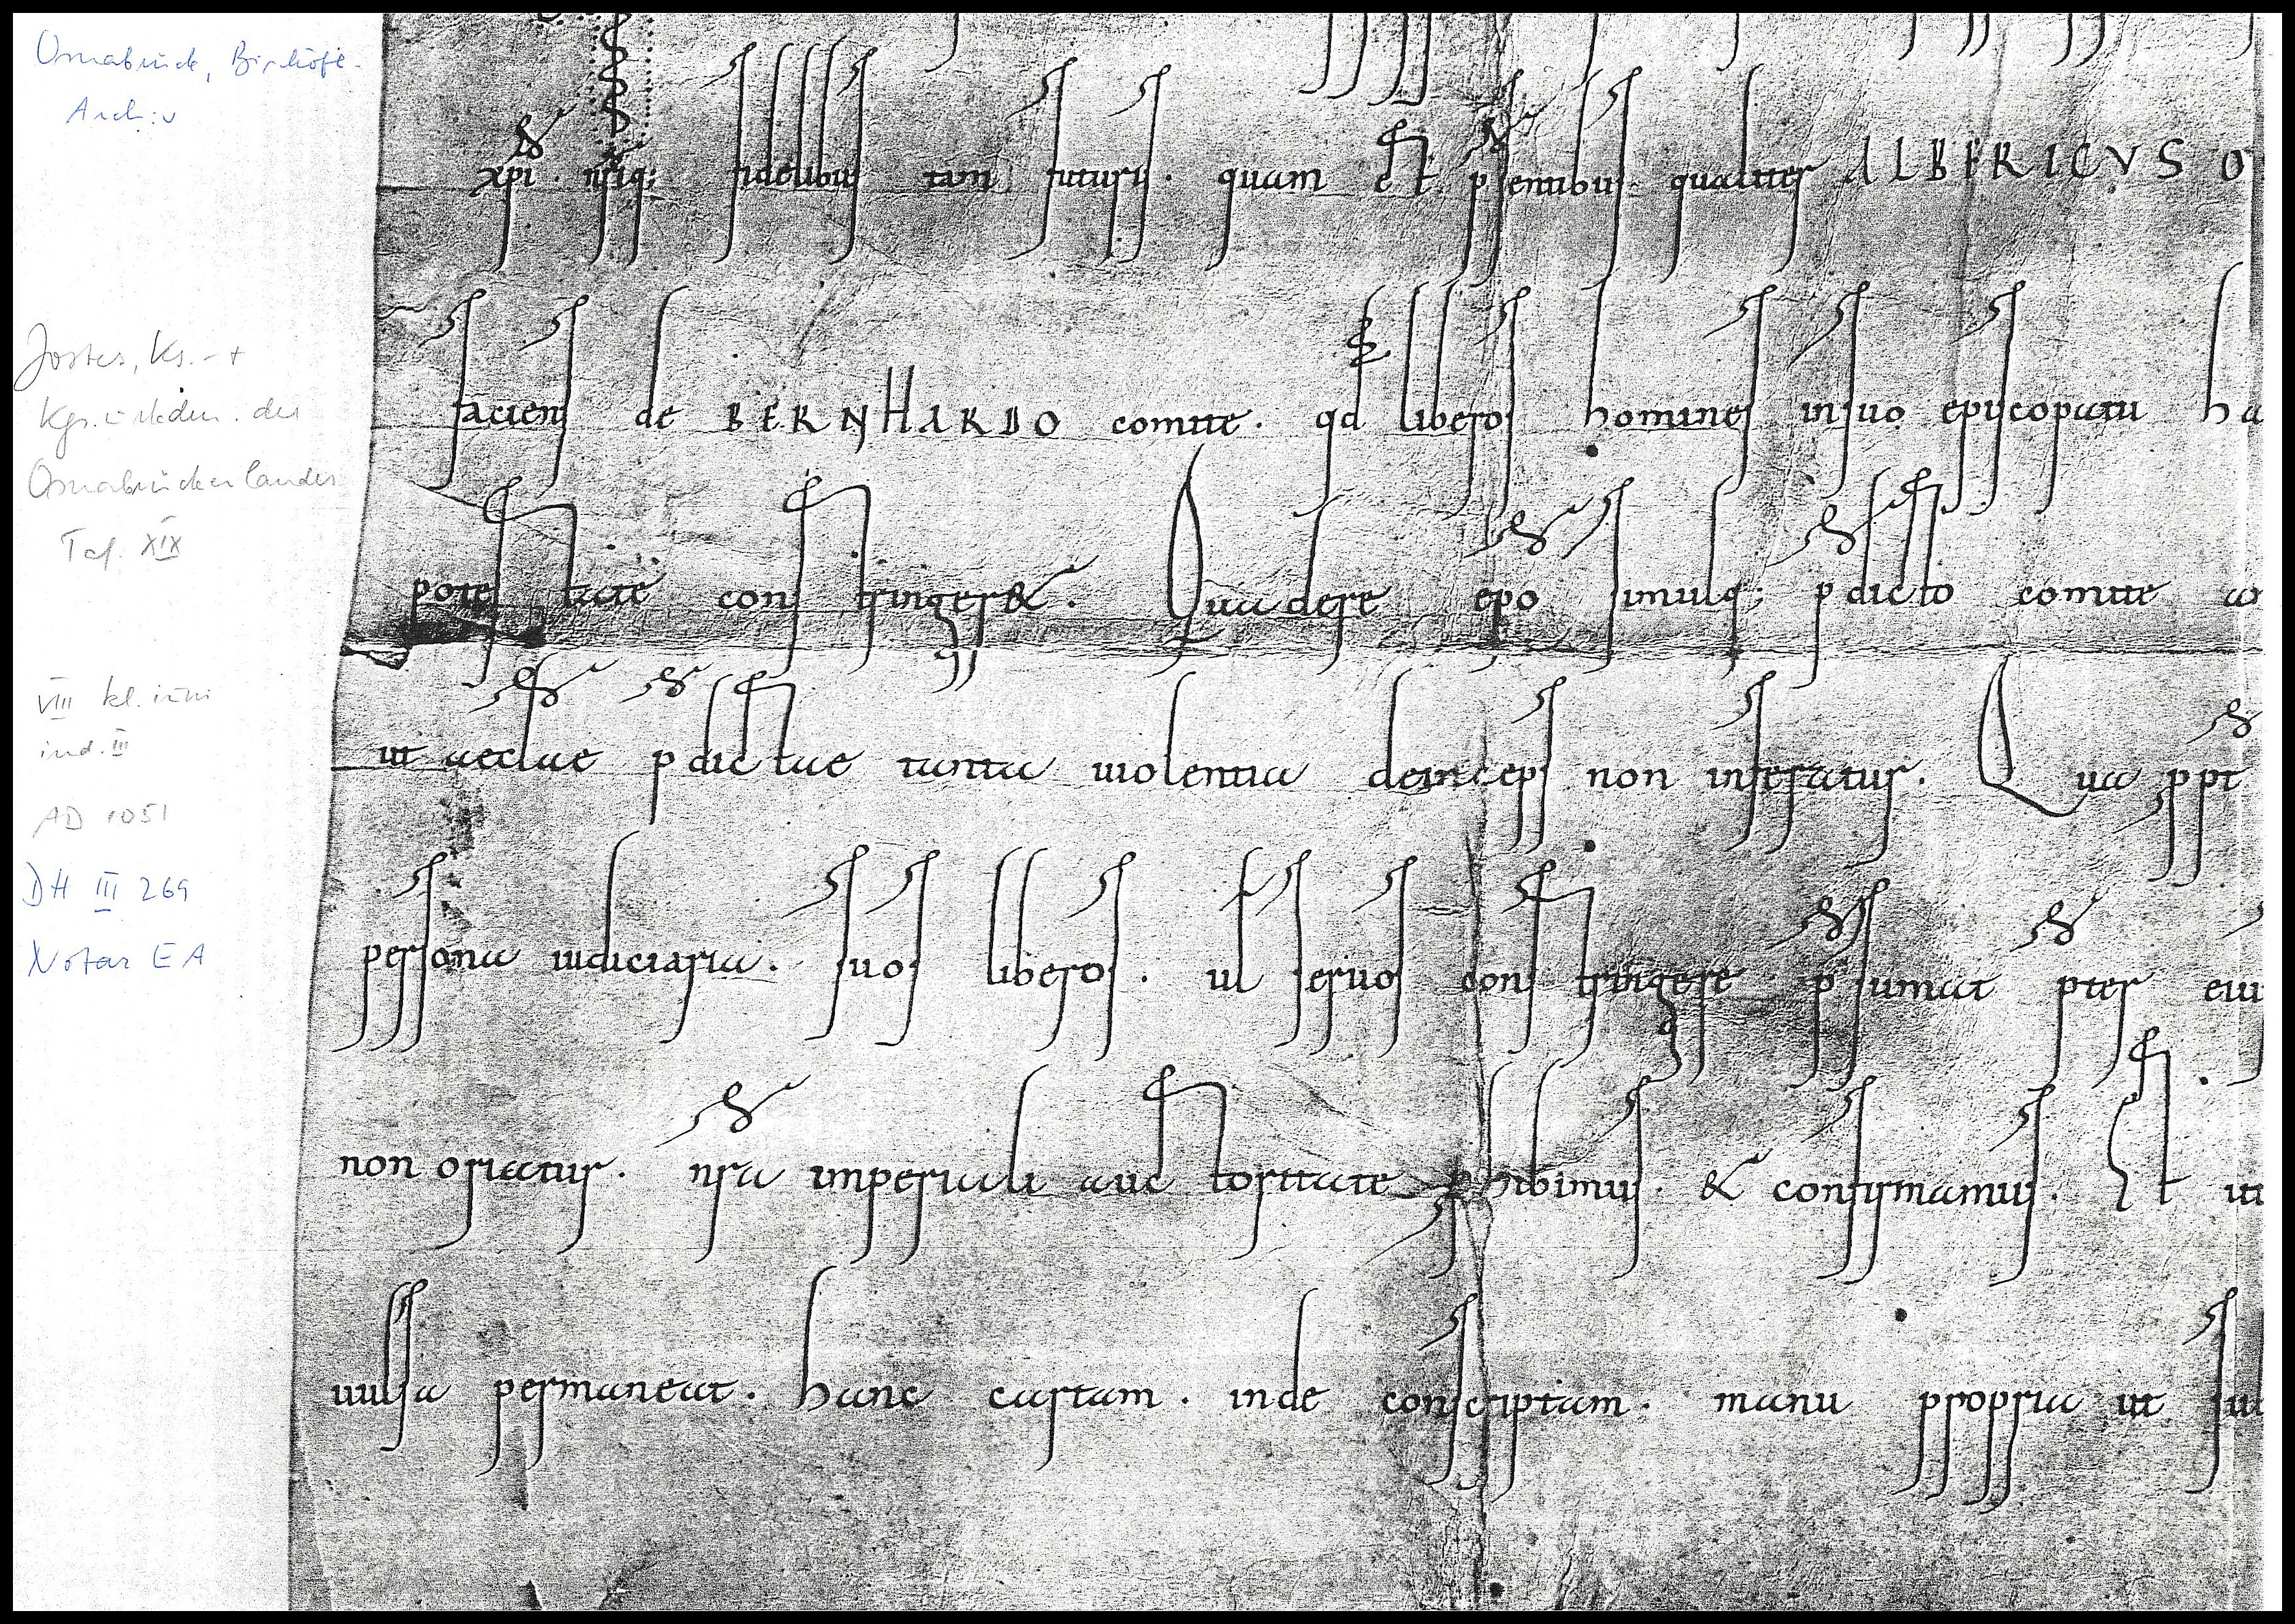 Osnabrück, Bischöfl.
Archiv
Jostes, Ks. - +
Kgs.urkdn. des
Osnabrücker Landes
Taf. XIX
VIII kl. iuni
ind. III
AD 1051
DH III 269
Notar EA
xpi · nr̄iq; fidelibus tam futuris · quam et p̄sentibus qualiter ALBERICVS O
faciens de BERNHARDO comite · qd̄ liberos homines in suo episcopatu ha
potestate constringeret · Qua de re ep̄o simulq; p̄dicto comite
ut aeccl̄ae p̄dictae tanta uiolentia deinceps non inferatur · Qua ppt̄
persona iudiciaria · suos liberos · ul̄ seruos constringere p̄sumat p̄ter eiu
non oriatur · nr̄a imperiali auctoritate phibimus · & confirmamus · Et ut
uulsa permaneat · hanc cartam · inde conscriptam · manu propria ut